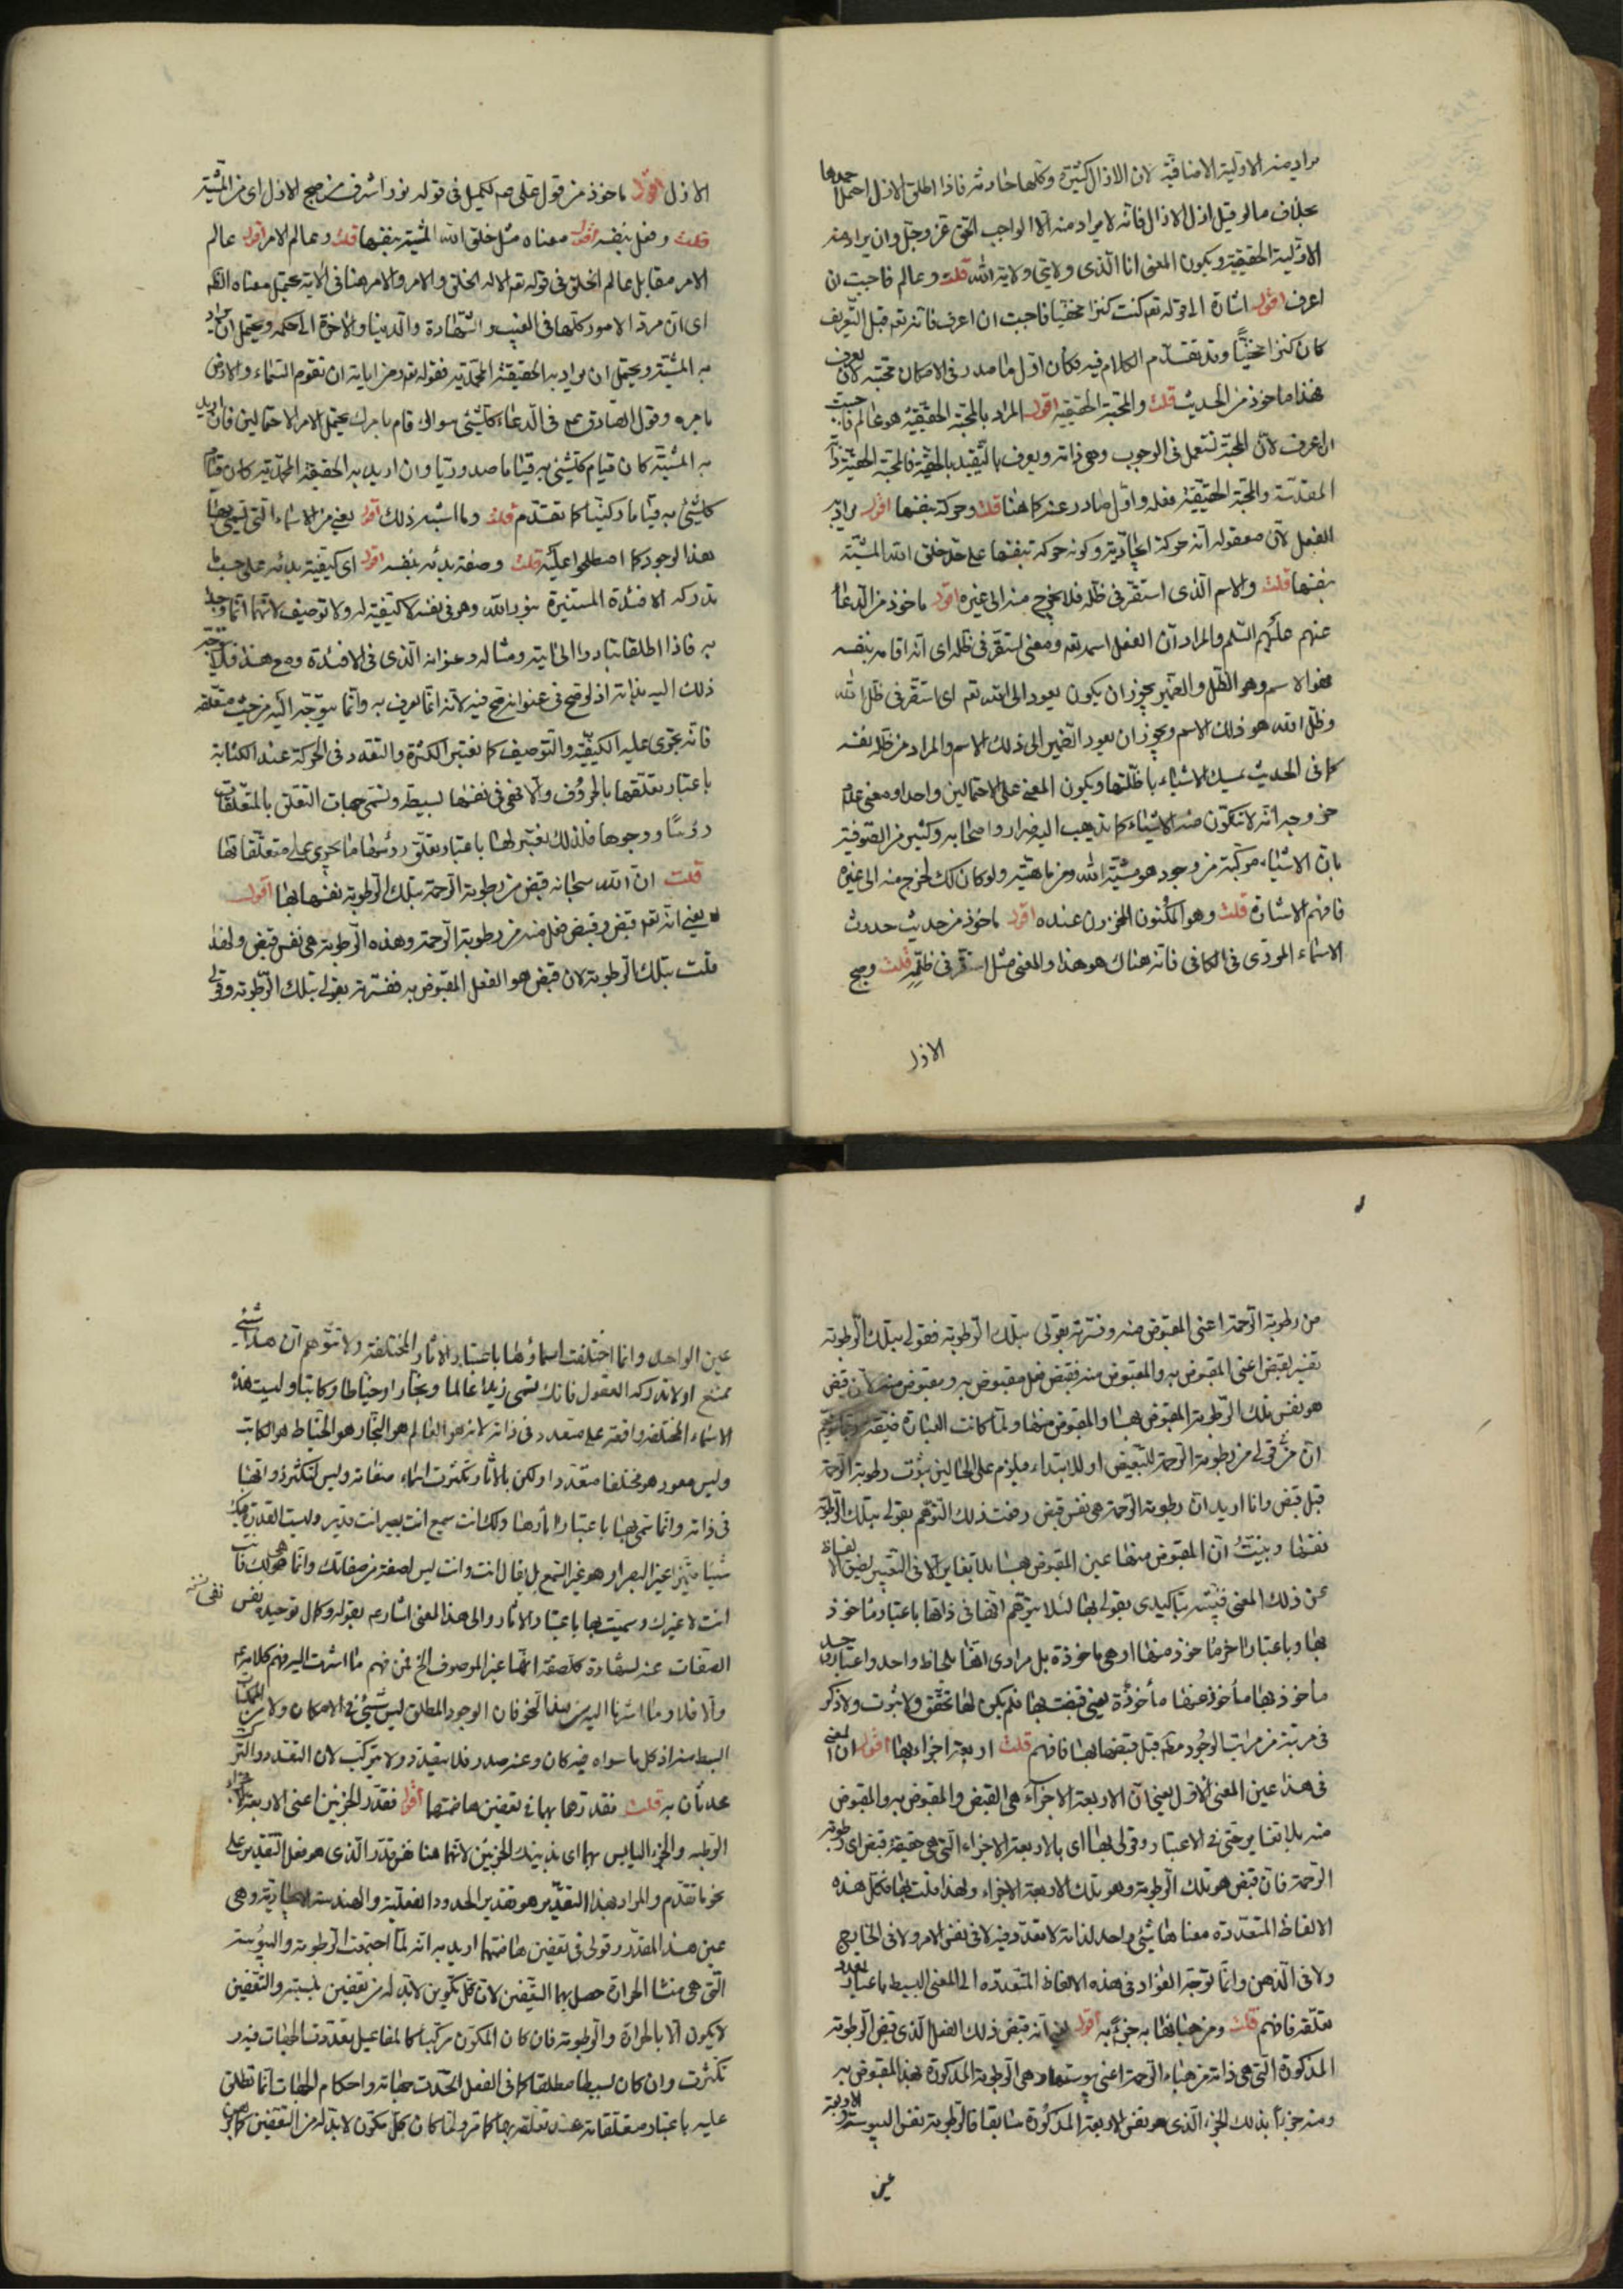 مراد منه الاولية الاضافية لان الازال كثيرة وكلها حادثة فاذا اطلق الازل احتمل احدها
بخلاف ما لو قيل ازل الازال فانه لا يراد منه الا الواجب الحق عز وجل وان يراد منه
الاولية الحقيقية ويكون المعنى انا الذى ولايتى ولاية الله قلت وعالم فاحببت ان
اعرف اقول اشارة الى قوله تعه كنت كنزا مخفيا فاحببت ان اعرف فانه تعه قبل التعريف
كان كنزا مخفيا وقد تقدم الكلام فيه فكان اول ما صدر فى الامكان محبته لان يعرف
هذا ماخوذ من الحديث قلت والمحبة الحقيقية اقول المراد بالمحبة الحقيقية هو عالم فاحببت
ان اعرف لان المحبة تستعمل فى الوجوب وهى ذاته ويعرف بالتقييد بالحقية فالمحبة الحقية ذاته
المقدسة والمحبة الحقيقية فعله واول صادر عنه كما هنا قلت وحركة بنفسها اقول يراد به
الفعل لان معقوله انه حركة ايجادية وكونه حركة بنفسها على حد خلق الله المشية
بنفسها قلت والاسم الذى استقر فى ظله فلا يخرج منه الى غيره اقول ماخوذ من الدعاء
عنهم عليهم السلم والمراد ان الفعل اسمه تعه ومعنى استقر فى ظله اى انه اقامه بنفسه
فهو الاسم وهو الظل والضمير يجوز ان يكون يعود الى الله تعه اى استقر فى ظل الله
وظل الله هو ذلك الاسم ويجوز ان يعود الضمير الى ذلك الاسم والمراد من ظله نفسه
كما فى الحديث يمسك الاشياء باظلتها ويكون المعنى على الاحتمالين واحدا ومعنى عدم
خروجه انه لا تتكون منه الاشياء كما يذهب اليه ضرار واصحابه وكثير من الصوفية
بان الاشياء مركبة من وجود هو مشية الله ومن ماهية ولو كان كك لخرج منه الى غيره
فافهم الاشارة قلت وهو المكنون المخزون عنده اقول ماخوذ من حديث حدوث
الاسماء المروى فى الكافى فانه هناك هو هذا والمعنى مثل استقر فى ظله قلت وصبح
الازل
الازل اقول ماخوذ من قول على عم لكميل فى قوله نور اشرق من صبح الازل اى من المشية
قلت وفعل بنفسه اقول معناه مثل خلق الله المشية بنفسها قلت وعالم الامر اقول عالم
الامر مقابل عالم الخلق فى قوله تعه الا له الخلق والامر والامر هنا فى الاية يحتمل معناه الحكم
اى ان مرد الامور كلها فى الغيب والشهادة والدنيا والاخرة الى حكمه ويحتمل ان يراد
به المشية ويحتمل ان يراد به الحقيقة المحمدية فقوله تعه ومن اياته ان تقوم السماء والارض
بامره وقول الصادق عم فى الدعاء كل شئ سواك قام بامرك يحتمل الامر الاحتمالين فان اريد
به المشية كان قيام كل شئ به قياما صدوريا وان اريد به الحقيقة المحمدية كان قيام
كل شئ به قياما ركنيا كما تقدم قلت وما اشبه ذلك اقول يعنى من الاسماء التى تسمى بها
هذا الوجود كما اصطلحوا عليه قلت وصفة بدئه بنفسه اقول اى كيفية بدئه على حسب ما
تدركه الافئدة المستنيرة بنور الله وهو فى نفسه لا كيفية له ولا توصيف لانهما انما وجدا
به فاذا اطلقا تبادرا الى اثيته ومثاله وعنوانه الذى فى الافئدة ومع هذا فلا يتوجه
ذلك اليه بذاته اذ لو صح فى عنوانه صح فيه لانه انما يعرف به وانما يتوجه اليه من حيث متعلقه
فانه يجرى عليه الكيفية والتوصيف كما تعتبر الكثرة والتعدد فى الحركة عند الكتابة
باعتبار تعلقها بالحروف والا فهى فى نفسها بسيطة وتسمى جهات التعلق بالمتعلقات
رؤسا ووجوها فلذلك يعتبر لها باعتبار تعلق رؤسها ما يجرى على متعلقاتها
قلت ان الله سبحانه قبض من رطوبة الرحمة بتلك الرطوبة نفسها بها اقول
يعنى انه تعه قبض وقبض فعل منه من رطوبة الرحمة وهذه الرطوبة هى نفس قبض ولهذا
قلت بتلك الرطوبة لان قبض هو الفعل المقبوض به ففسرته بقولى بتلك الرطوبة وقولى
من رطوبة الرحمة اعنى المقبوض منه وفسرته بقولى بتلك الرطوبة فقولى بتلك الرطوبة
تفسير لقبض اعنى المقبوض به والمقبوض منه فقبض فعل مقبوض به ومقبوض منه لان قبض
هو نفس تلك الرطوبة المقبوض بها والمقبوض منها ولما كانت العبارة ضيقة ربما يتوهم
ان من فى قولى من رطوبة الرحمة للتبعيض او للابتداء فيلزم على الحالين ثبوت رطوبة الرحمة
قبل قبض وانا اريد ان رطوبة الرحمة هى نفس قبض رفعت ذلك التوهم بقولى بتلك الرطوبة
نفسها وبينت ان المقبوض منها عين المقبوض بها بلا تغاير الا فى التعبير لضيق الالفاظ
عن ذلك المعنى فبينته بتاكيدى بقولى بها لئلا يتوهم انها فى ذاتها باعتبار ماخوذ
بها وباعتبار اخر ماخوذ منها او هى ماخوذة بل مرادى انها بلحاظ واحد واعتبار واحد
مأخوذ بها مأخوذ منها مأخوذة يعنى قبضت بها فلم يكن لها تحقق ولا ثبوت ولا ذكر
فى مرتبة من مراتب الوجود قبل قبضها بها فافهم قلت اربعة اجزاء بها اقول ان المعنى
فى هذا عين المعنى الاول يعنى ان الاربعة الاجزاء هى القبض والمقبوض به والمقبوض
منه بلا تغاير حتى فى الاعتبار وقولى بها اى بالاربعة الاجزاء التى هى حقيقة قبض اى رطوبة
الرحمة فان قبض هو تلك الرطوبة وهو تلك الاربعة الاجزاء ولهذا قلت بها فكل هذه
الالفاظ المتعددة معناها شئ واحد لذاته لا تعدد فيه لا فى نفس الامر ولا فى الخارج
ولا فى الذهن وانما توجه الفؤاد فى هذه الالفاظ المتعددة الى المعنى البسيط باعتبار تعدد
تعلقه فافهم قلت ومن هبائها به جزء به اقول يعنى انه قبض ذلك الفعل الذى قبض الرطوبة
المذكورة التى هى ذاته من هباء الرحمة اعنى يبوستها وهى الرطوبة المذكورة بهذا المقبوض به
ومنه جزءا بذلك الجزء الذى هو نفس الاربعة المذكورة سابقا فالرطوبة نفس اليبوسة والاربعة
عين
عين الواحد وانما اختلفت اسماؤها باعتبار الاثار المختلفة ولا تتوهم ان هذا شئ
ممتنع او لا تدركه العقول فانك تسمى زيدا عالما ونجارا وخياطا وكاتبا وليست هذه
الاسماء المختلفة واقعة على متعدد فى ذاته لانه هو العالم هو النجار هو الخياط هو الكاتب
وليس معود هو مختلفا متعددا ولكن بالاثار تكثرت اسماء صفاته وليس لتكثره واتصفا
فى ذاته وانما تسمى بها باعتبار اثارها وكك انت سميع انت بصير انت قدير وليست القدرة فيك
شيئا متميزا غير البصر او هو غير السمع بل يقال انت وانت ليس لصفة من صفاتك وانما هى لك فانت
انت لا غيرك وسميت بها باعتبار الاثار والى هذا المعنى اشار عم بقوله وكمال توحيده نفس
نفى نسخه
الصفات عنه لشهادة كل صفة انها غير الموصوف الخ فمن فهم ما اشرت اليه فهم كلامى
والا فلا وما اشرنا اليه من هذا النحو فان الوجود المطلق ليس شئ فى الامكان ولا من الممكنات
ابسط منه اذ كل ما سواه فيه كان وعنه صدر فلا يتعدد ولا يتركب لان التعدد والتركب
محدثان به قلت فقدرها بها فى تعفين هاضمتها اقول فقدر الجزئين اعنى الاربعة الاجزاء
الرطبة والجزء اليابس بهما اى بذينك الجزئين لانهما هنا نفس قدر الذى هو فعل التقدير على
نحو ما تقدم والمراد بهذا التقدير هو تقدير الحدود الفعلية والهندسة الايجادية وهى
عين هذا المقدر وقولى فى تعفين هاضمتها اريد به انه لما اجتمعت الرطوبة واليبوسة
التى هى منشا الحرارة حصل بهما التعفين لان كل تكوين لابد له من تعفين بنسبته والتعفين
لا يكون الا بالحرارة والرطوبة فان كان المكون مركبا كالمفاعيل تعددت الجهات فيه و
تكثرت وان كان بسيطا مطلقا كما فى الفعل اتحدت جهاته واحكام الجهات انما تطلق
عليه باعتبار متعلقاته عند تعلقه بها كما مر ولما كان كل مكون لابد له من التعفين كما هو